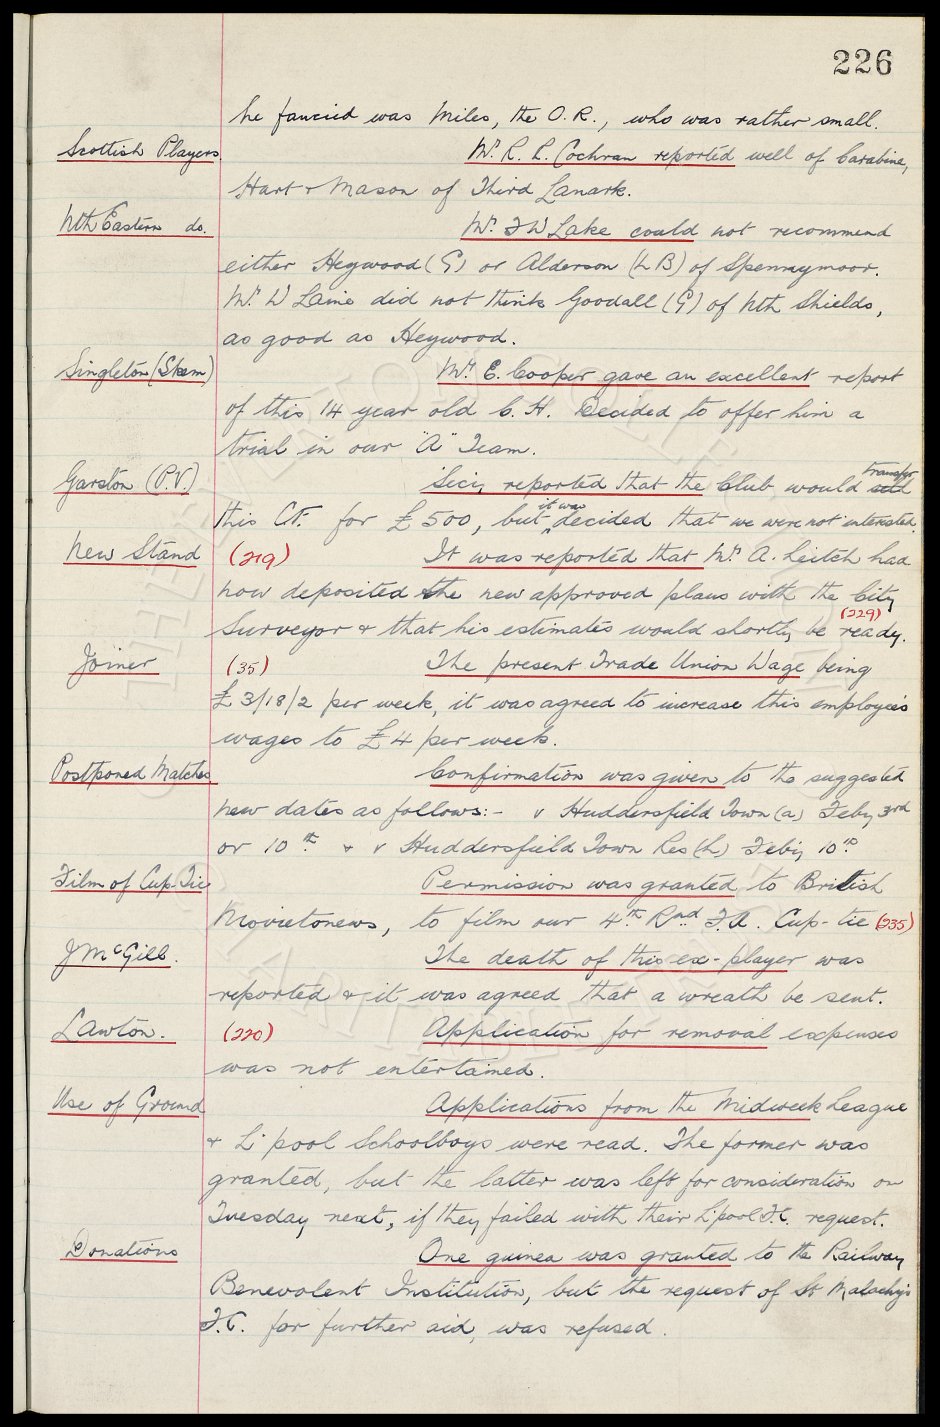 226
he fancied was Miles, the O. R., who was rather small.
Scottish Players Mr. R. L. Cochran reported well of Carabine,
Hart & Mason of Third Lanark.
Nth Eastern do. Mr. F W Lake could not recommend
either Heywood (G) or Alderson (L B) of Spennymoor.
Mr. W Laine did not think Goodall (G) of Nth Shields,
as good as Heywood.
Singleton (Skem) Mr. E. Cooper gave an excellent report
of this 14 year old C. H. Decided to offer him a
trial in our "A" Team.
Garston (P.V.) Secy reported that the Club would transfer
this CF. for £500, but it was decided that we were not interested.
New Stand (219) It was reported that Mr. A. Leitch had
now deposited the new approved plans with the City
Surveyor & that his estimates would shortly be ready. (229)
Joiner (35) The present Trade Union Wage being
£3/18/2 per week, it was agreed to increase this employee's
wages to £4 per week.
Postponed Matches Confirmation was given to the suggested
new dates as follows:- v Huddersfield Town (a) Feby 3rd
or 10th & v Huddersfield Town Res (h) Feby 10th
Film of Cup-Tie Permission was granted to British
Movietonews, to film our 4th Rnd F.A. Cup-tie (235)
J McGill. The death of this ex-player was
reported & it was agreed that a wreath be sent.
Lawton. (220) Application for removal expenses
was not entertained.
Use of Ground Applications from the Midweek League
& L'pool Schoolboys were read. The former was
granted, but the latter was left for consideration on
Tuesday next, if they failed with their L'pool F.C. request.
Donations One guinea was granted to the Railway
Benevolent Institution, but the request of St Malachy's
F.C. for further aid, was refused.